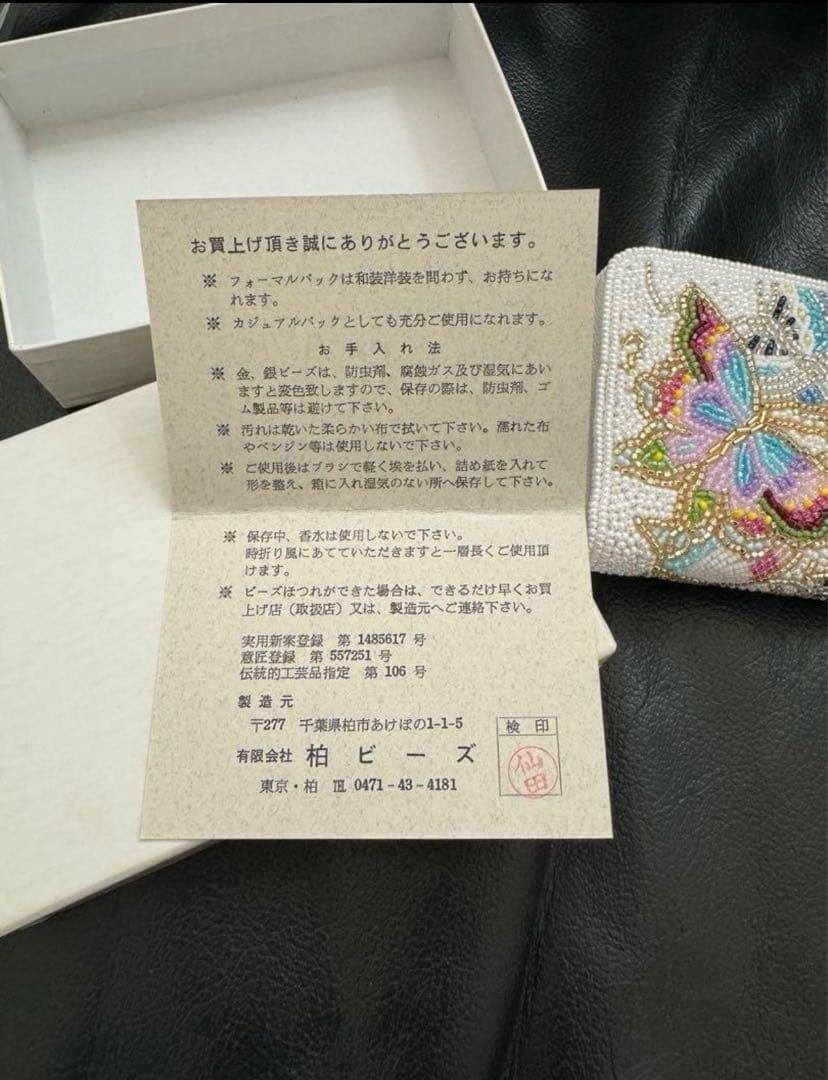 お買上げ頂き誠にありがとうございます。
※ フォーマルバックは和装洋装を問わず、お持ちにな
れます。
※ カジュアルバックとしても充分ご使用になれます。
お手入れ法
※ 金、銀ビーズは、防虫剤、腐蝕ガス及び湿気にあい
ますと変色致しますので、保存の際は、防虫剤、ゴ
ム製品等は避けて下さい。
※ 汚れは乾いた柔らかい布で拭いて下さい。濡れた布
やベンジン等は使用しないで下さい。
※ ご使用後はブラシで軽く埃を払い、詰め紙を入れて
形を整え、箱に入れ湿気のない所へ保存して下さい。
※ 保存中、香水は使用しないで下さい。
時折り風にあてていただきますと一層長くご使用頂
けます。
※ ビーズほつれができた場合は、できるだけ早くお買
上げ店（取扱店）又は、製造元へご連絡下さい。
実用新案登録 第 1485617 号
意匠登録 第 557251 号
伝統的工芸品指定 第 106 号
製造元
〒277 千葉県柏市あけぼの1-1-5
有限会社 柏ビーズ
東京・柏 ℡ 0471-43-4181
検印
仙田